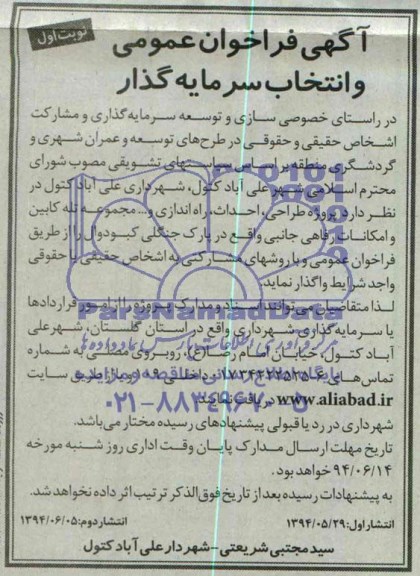 نوبت اول
آگهی فراخوان عمومی
و انتخاب سرمایه گذار
در راستای خصوصی سازی و توسعه سرمایه گذاری و مشارکت
اشخاص حقیقی و حقوقی در طرح های توسعه و عمران شهری و
گردشگری منطقه بر اساس سیاستهای تشویقی مصوب شورای
محترم اسلامی شهر علی آباد کتول، شهرداری علی آباد کتول در
نظر دارد پروژه طراحی، احداث، راه اندازی و... مجموعه تله کابین
و امکانات رفاهی جانبی واقع در پارک جنگلی کبودوال را از طریق
فراخوان عمومی و با روشهای مشارکتی به اشخاص حقیقی یا حقوقی
واجد شرایط واگذار نماید.
لذا متقاضیان می توانند اسناد و مدارک پروژه را از امور قراردادها
یا سرمایه گذاری شهرداری واقع در استان گلستان، شهر علی
آباد کتول، خیابان امام رضا(ع)، روبروی مصلی به شماره
تماس های داخلی و یا از طریق سایت
www.aliabad.ir دریافت نمایند.
شهرداری در رد یا قبولی پیشنهادهای رسیده مختار می باشد.
تاریخ مهلت ارسال مدارک پایان وقت اداری روز شنبه مورخه
۹۴/۰۶/۱۴ خواهد بود.
به پیشنهادات رسیده بعد از تاریخ فوق الذکر ترتیب اثر داده نخواهد شد.
انتشار اول: ۱۳۹۴/۰۵/۲۹ انتشار دوم: ۱۳۹۴/۰۶/۰۵
سید مجتبی شریعتی - شهردار علی آباد کتول
ParsNamadData
۰۲۱-۸۸۳۴۹۶۷۰-۵